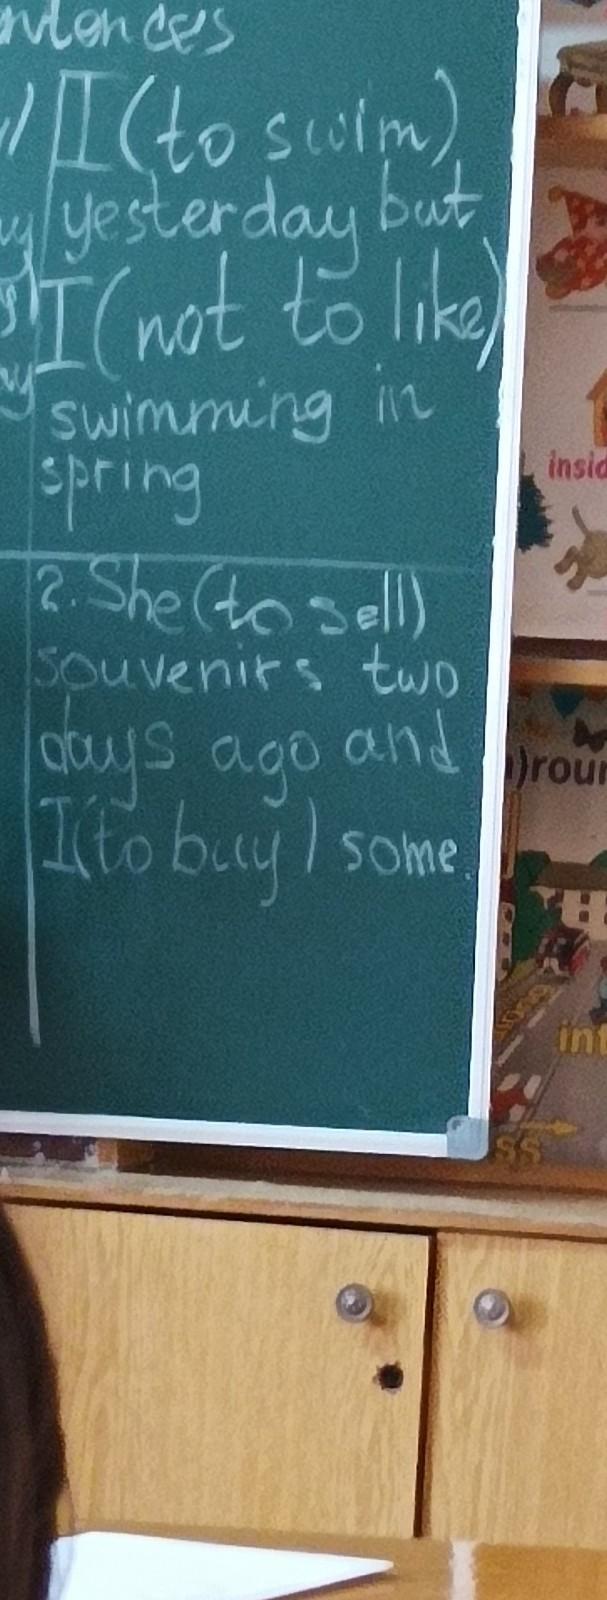 sentences
I (to swim)
yesterday but
I (not to like)
swimming in
spring
2. She (to sell)
souvenirs two
days ago and
I (to buy) some.
ss